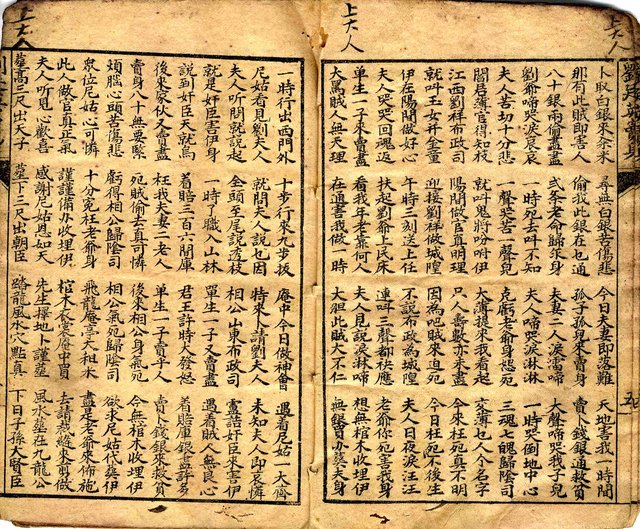 上大人
卜取白銀來奈來 尋無白銀苦傷悲 今日夫妻即落難 天地害我一時間
那有此賊即害人 偷我此銀在乜通 孤子孤兒來賣身 賣卜錢銀通救貧
八十銀兩偷盡盡 弍條老命歸災身 夫妻二人淚濡啼 大聲啼哭我子兒
劉爺啼哭淚哀哀 一時死去叫不知 夫人啼哭淚淋淋 一時哭倒地中心
夫人苦切十分悲 一聲哭苦一聲兒 克虧老爺身怨死 三魂七魄歸陰司
閻君薄官得知枝 就叫鬼將吩咐伊 大薄提來我看起 京薄乜人小名字
江西劉祥布政司 陽間做官真明理 只人壽數亦未盡 今來枉死真不明
就叫玉女并金童 迎接劉祥做城隍 因為呅賊來迫死 今日枉死不復生
伊在陽間做好心 午時三刻送上任 不說布政為城隍 夫人日夜淚汪汪
夫人哭哭回魂返 扶起劉爺上民床 連叫三聲都秧應 老爺你死害我身
單生一子賣別人 我爺年老靠何人 夫人見說淚淋啼 想無棺木收埋伊
大罵賊人無天理 在通害我做一時 大胆此賊大不仁 無銀買小葬夫身
上大人
一時行出西門外 十步行來九步拔 庵中今日做神會 遇着尼姑一大齊
尼姑看見劉夫人 就問夫人說乜因 特來上請劉夫人 未知夫人即哀憐
夫人听問就說起 全頭至尾說透枝 相公出東布政司 盡詰奸臣來害伊
就是奸臣害伊身 一時了職入山林 單生一子人賣人 遇着看人無良心
說到奸臣天就馬 着賠三百六間庫 君王許時人發怒 着賠庫銀盡許多
後來家伙入命賣 枉我夫妻二老人 單生一子賣乎人 賣卜錢銀來救貧
賣身八十無要緊 死賊偷去真可憐 後來相公身氣死 今無棺木收埋伊
煩腦心頭苦傷悲 虧得相公歸陰司 相公氣死歸陰司 欲求尼姑代葬伊
眾位尼姑心可憐 十分克枉老爺身 飛龍庵亭大祖水 盡是老爺來佈施
此人做官真正氣 謹謹備办收埋伊 棺木衣裳庵中買 去請裁縫來剪做
夫人听見心歡喜 感謝尼姑恩如天 先生擇地卜謹葬 風水墓在九龍公
墓高三尺出天子 墓下三尺出朝臣 踏龍風水穴點真 下日子孫大賢臣